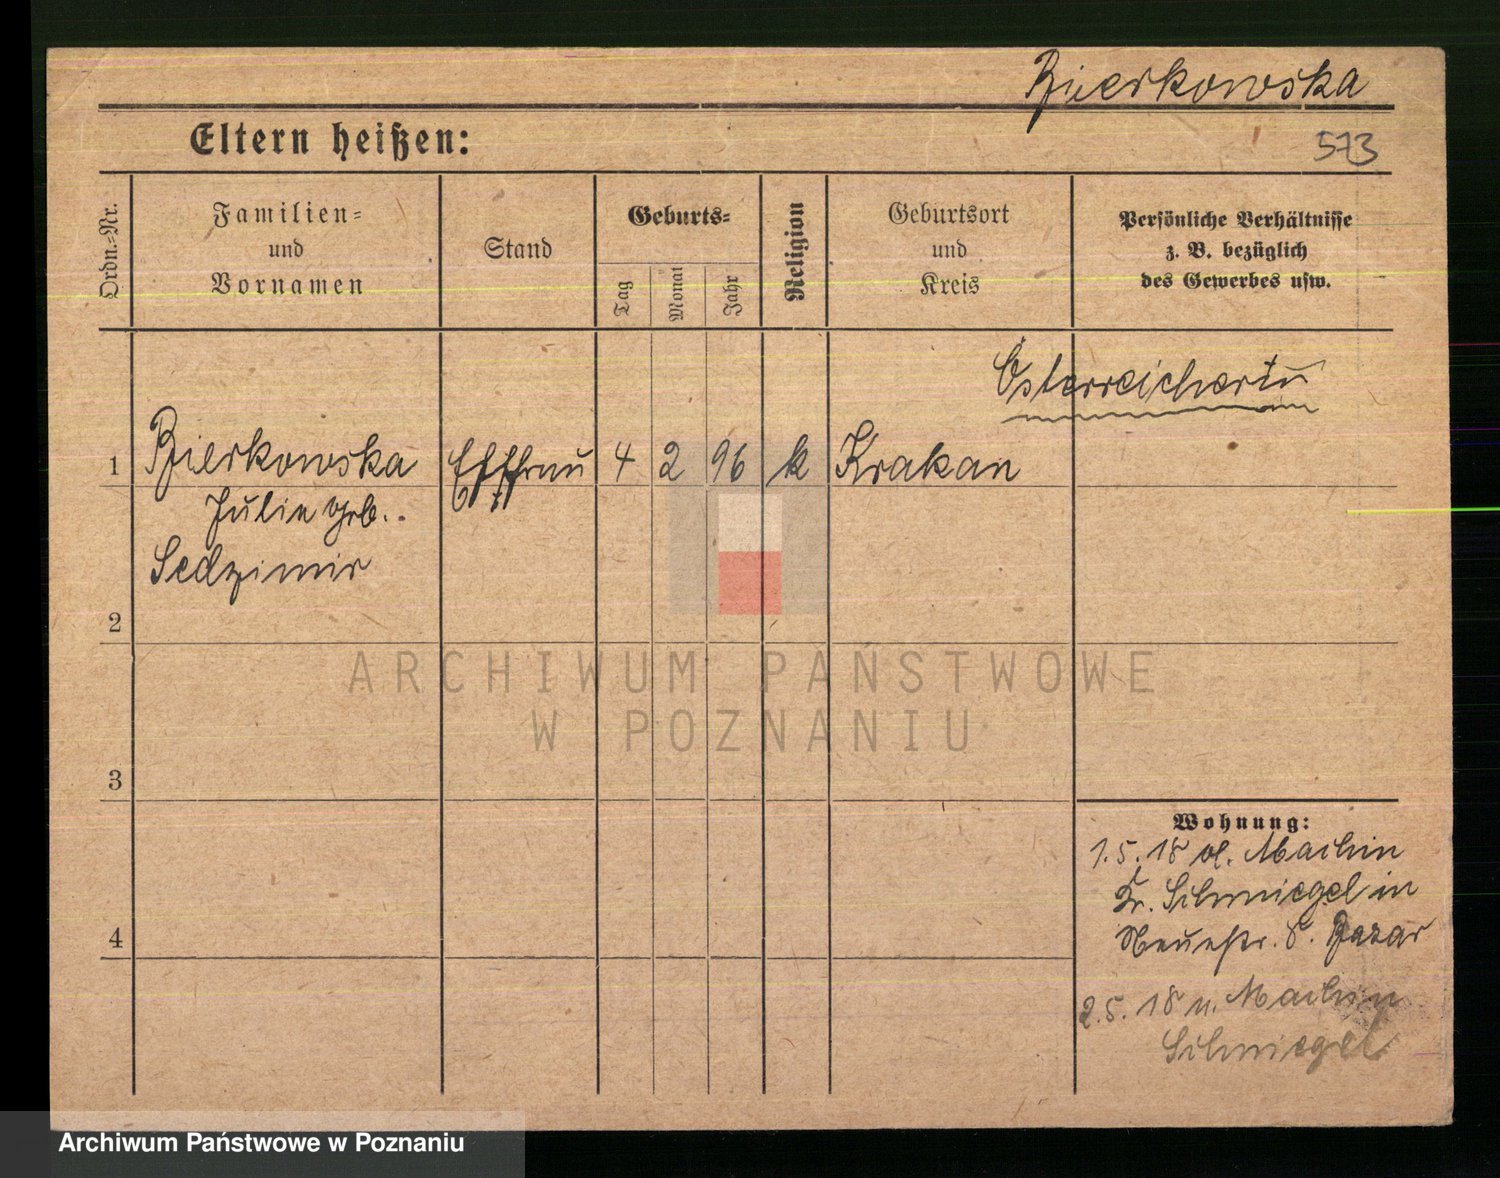 Bierkowska
Eltern heißen:
573
Ordn.-Nr.
Familien-
und
Vornamen
Stand
Geburts-
Tag
Monat
Jahr
Religion
Geburtsort
und
Kreis
Persönliche Verhältnisse
z. B. bezüglich
des Gewerbes usw.
Österreicherin
1 Bierkowska Ehefrau 4 2 96 k Krakau
Julie geb.
Sedzimir
2
3
4
Wohnung:
1.5.18 v. Machin
Kr. Schmiegel in
Neuestr. 8. Bazar
2.5.18 n. Machin
Schmiegel
ARCHIWUM PAŃSTWOWE
W POZNANIU
Archiwum Państwowe w Poznaniu